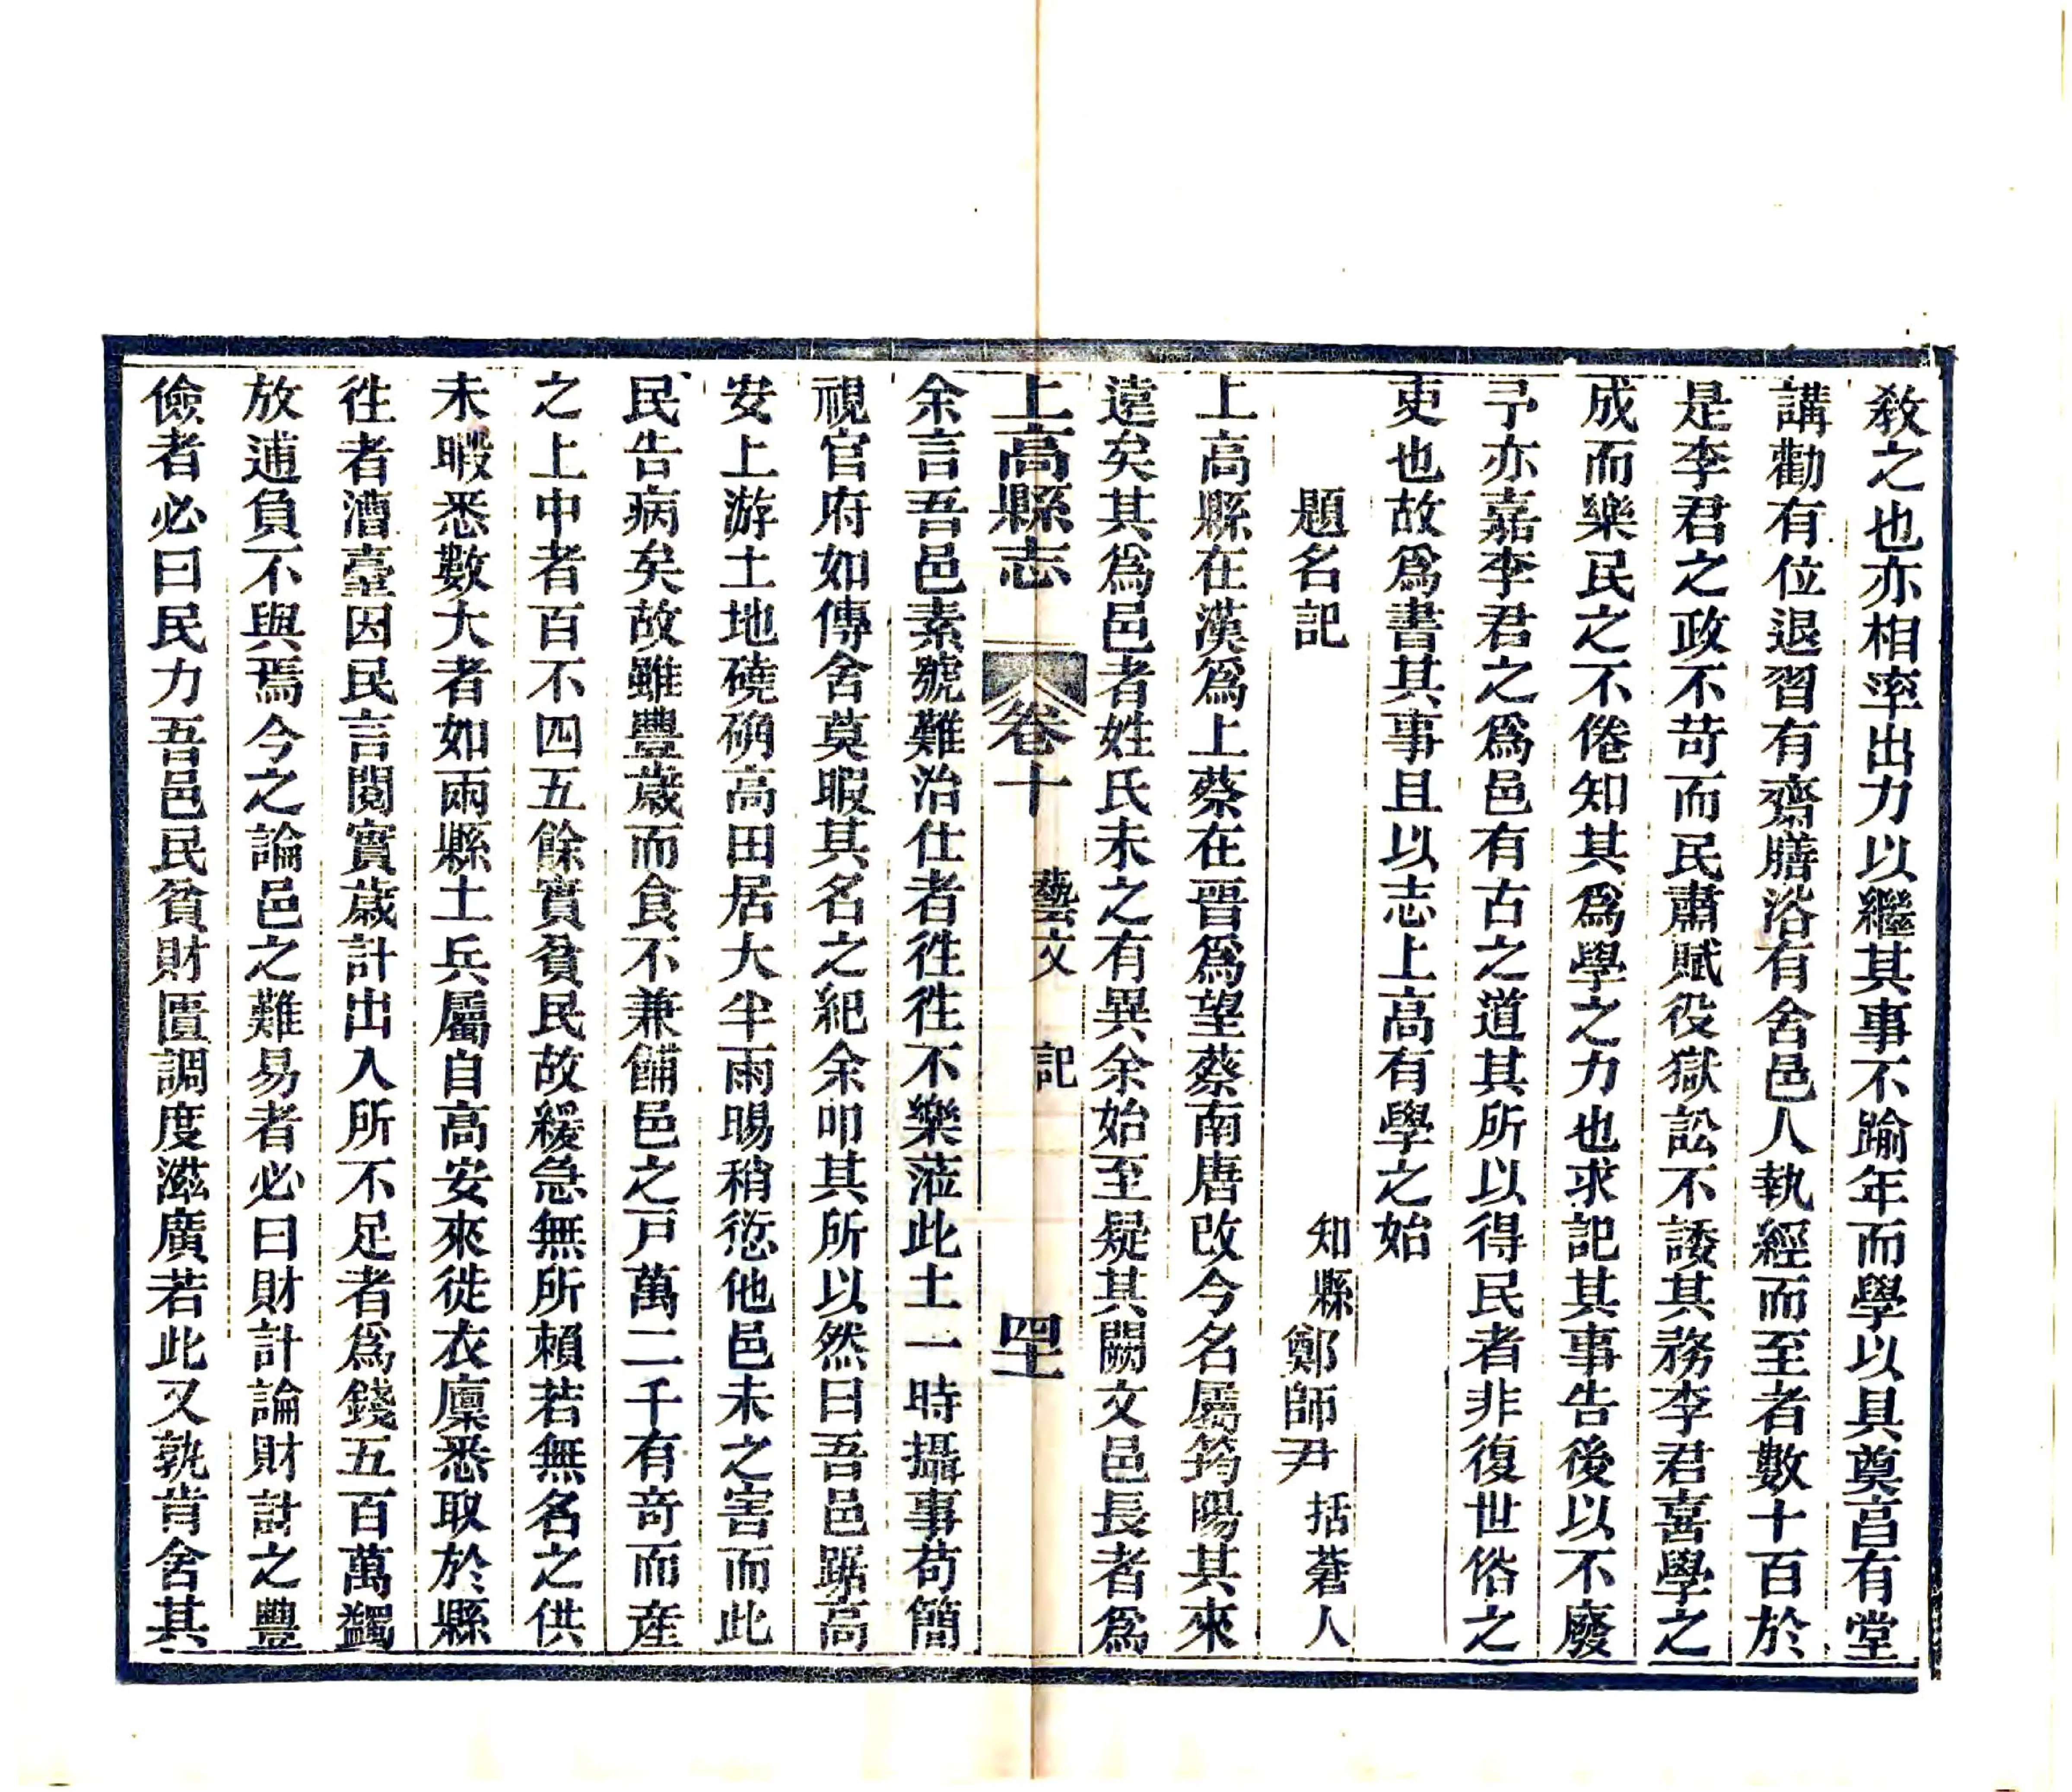 教之也亦相率出力以繼其事不踰年而學以具奠亯有堂
講勸有位退習有齋膳浴有舍邑人執經而至者數十百於
是李君之政不苛而民肅賦役獄訟不諉其務李君喜學之
成而樂民之不倦知其爲學之力也求記其事告後以不廢
予亦嘉李君之爲邑有古之道其所以得民者非復世俗之
吏也故爲書其事且以志上高有學之始
題名記　知縣鄭師尹括蒼人
上高縣在漢爲上蔡在晋爲望蔡南唐改今名屬筠陽其來
遠矣其爲邑者姓氏未之有異余始至疑其闕文邑長者爲
上高縣志　卷十　藝文　記　四七
余言吾邑素號難治仕者徃徃不樂蒞此土一時攝事苟簡
視官府如傳舍莫暇其名之紀余叩其所以然曰吾邑踞高
安上游土地磽确高田居大半雨暘稍愆他邑未之害而此
民告病矣故雖豐歲而食不兼餔邑之戸萬二千有奇而産
之上中者百不四五餘實貧民故緩急無所賴若無名之供
未暇悉數大者如兩縣土兵屬自高安來徙衣廩悉取於縣
徃者漕臺因民言閱實歲計出入所不足者爲錢五百萬蠲
放逋負不與焉今之論邑之難易者必曰財計論財計之豐
儉者必曰民力吾邑民貧財匱調度滋廣若此又孰肯舍其